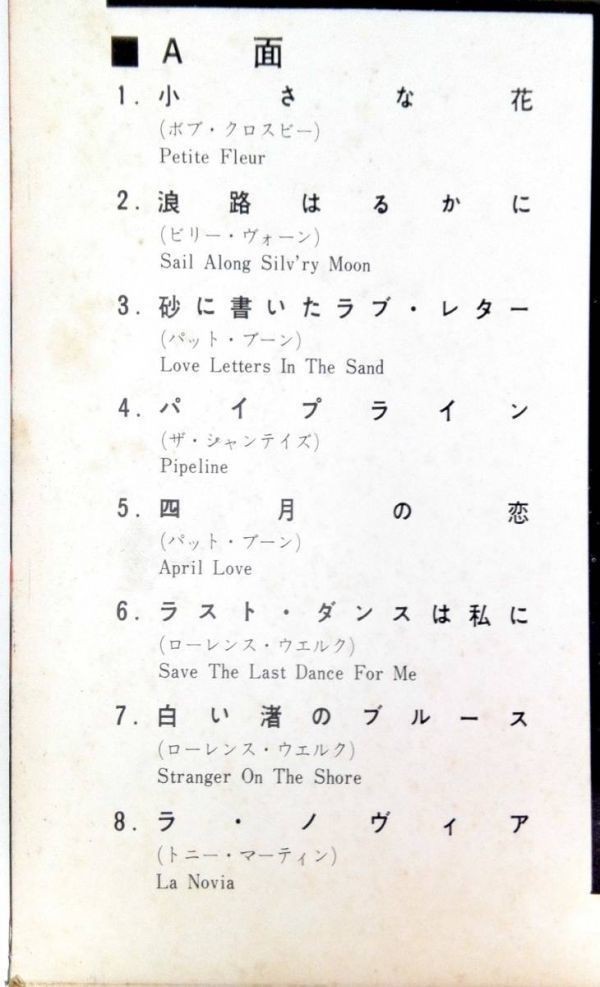 ■ A 面
1. 小さな花
(ボブ・クロスビー)
Petite Fleur
2. 浪路はるかに
(ビリー・ヴォーン)
Sail Along Silv'ry Moon
3. 砂に書いたラブ・レター
(パット・ブーン)
Love Letters In The Sand
4. パイプライン
(ザ・シャンテイズ)
Pipeline
5. 四月の恋
(パット・ブーン)
April Love
6. ラスト・ダンスは私に
(ローレンス・ウエルク)
Save The Last Dance For Me
7. 白い渚のブルース
(ローレンス・ウエルク)
Stranger On The Shore
8. ラ・ノヴィア
(トニー・マーティン)
La Novia